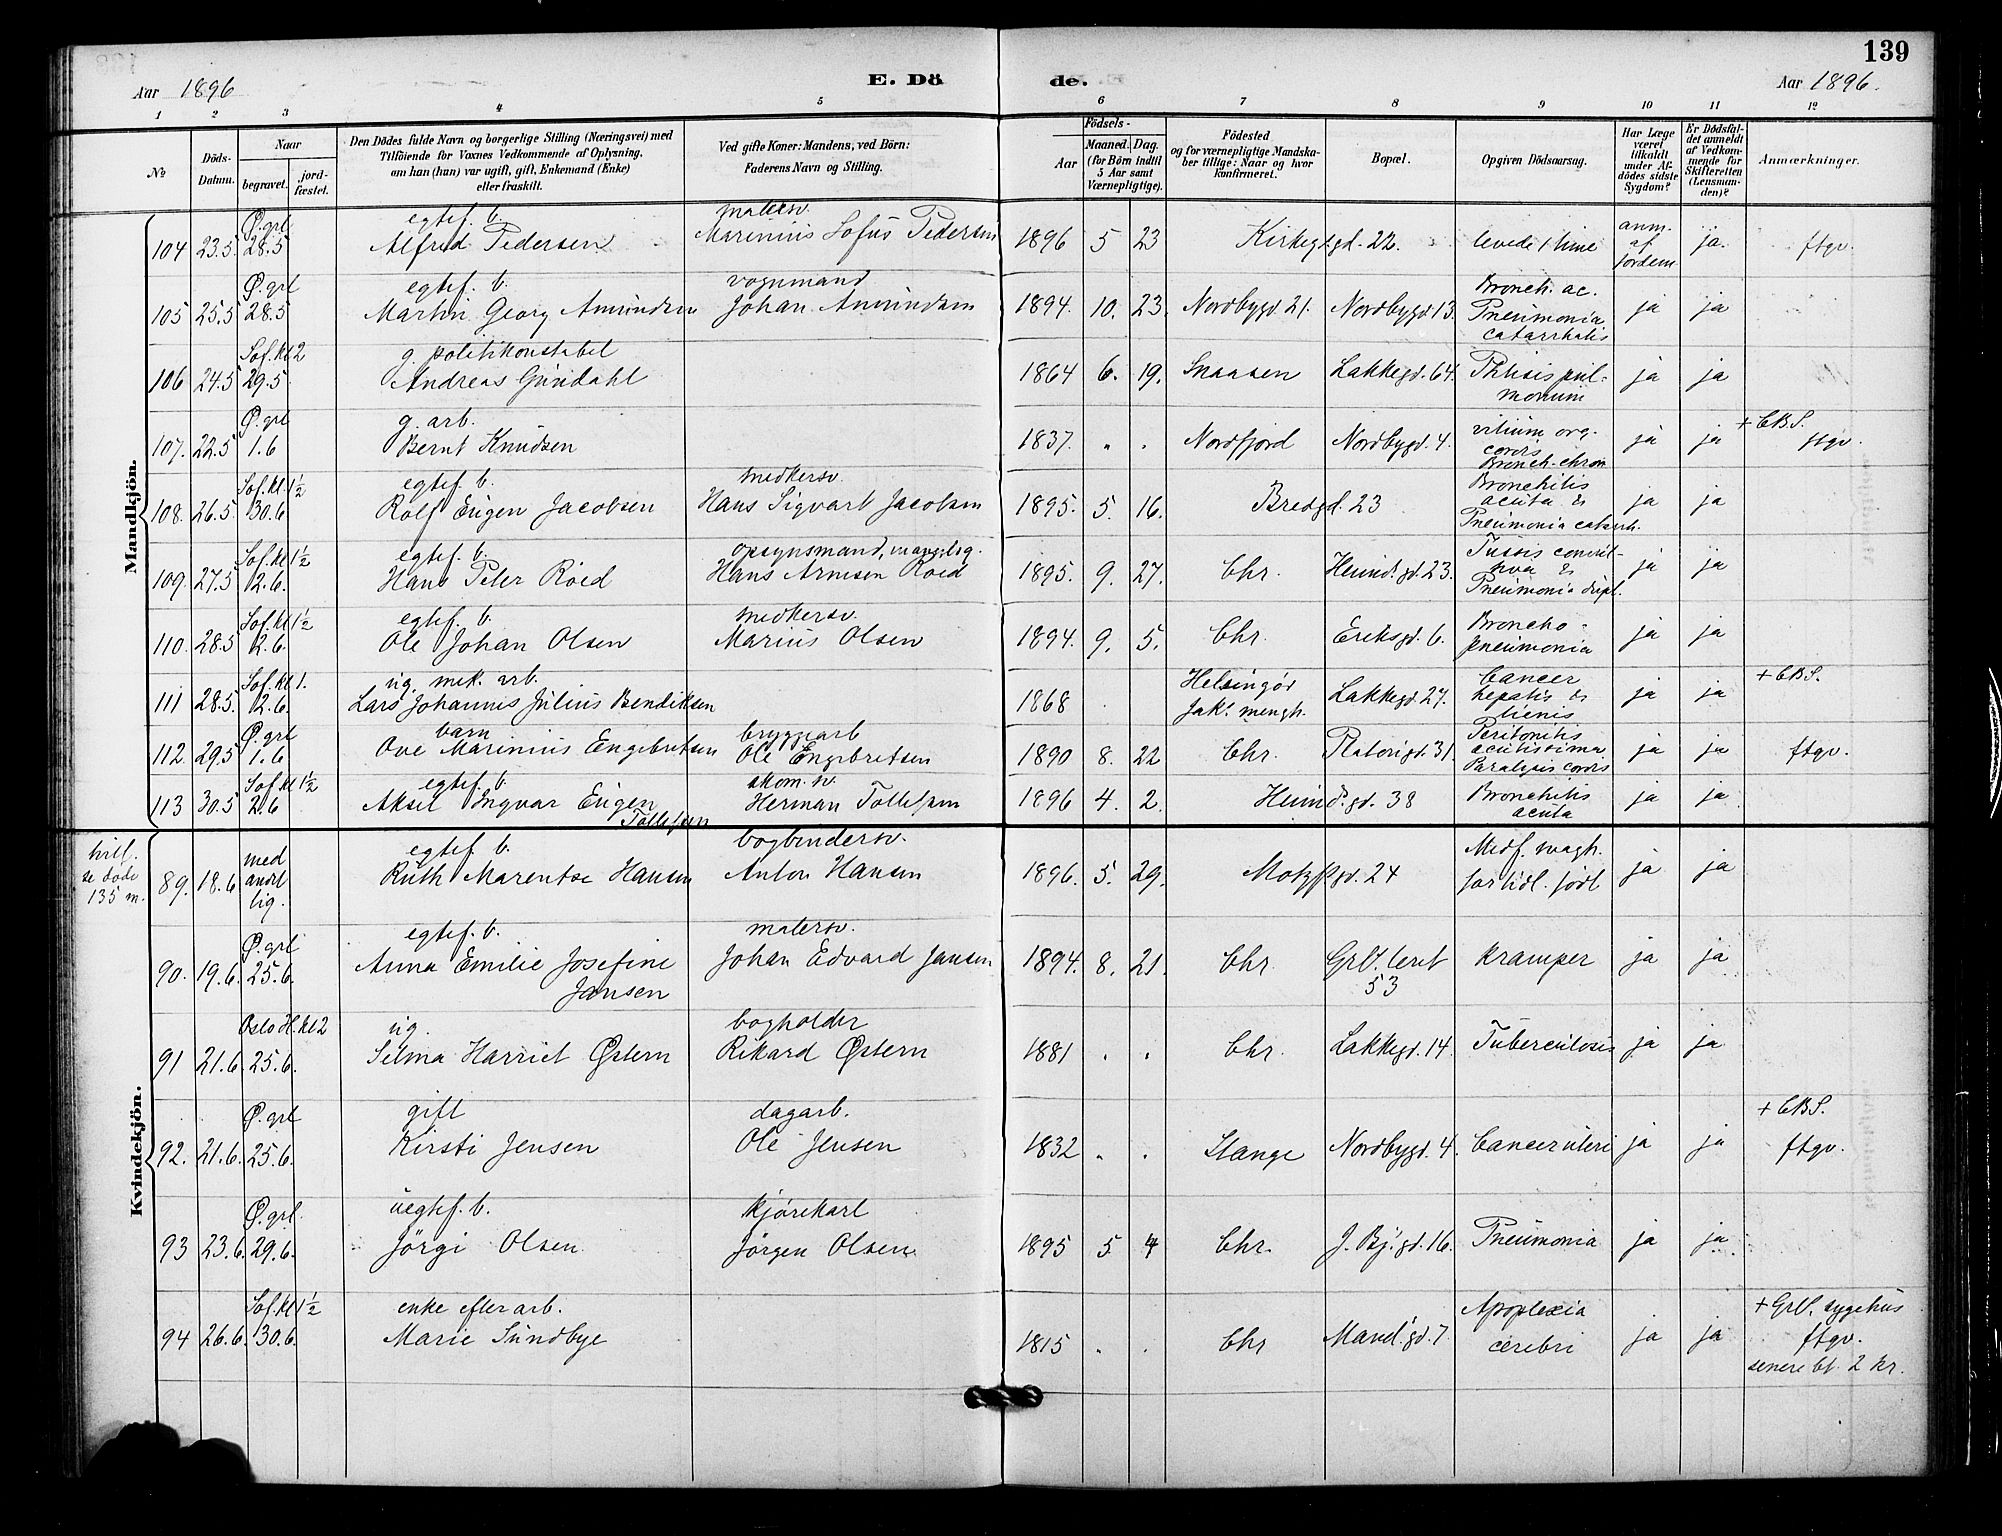 139
Aar 1896 E. Dö de. Aar 1896.
1 2 3 4 5 6 7 8 9 10 11 12
№ Döds-Datum. Naar begravet. jord-fæstet. Den Dödes fulde Navn og borgerlige Stilling (Næringsvei) med Tilföiende for Voxnes Vedkommende af Oplysning, om han (hun) var ugift, gift, Enkemand (Enke) eller fraskilt. Ved gifte Koner: Mandens, ved Börn: Faderens Navn og Stilling. Födsels- Aar Maaned. Dag. (for Börn indtil 5 Aar samt Værnepligtige). Födested og for værnepligtige Mandska-ber tillige: Naar og hvor konfirmeret. Bopæl. Opgiven Dödsaarsag. Har Læge været tilkaldt under Af-dödes sidste Sygdom? Er Dödsfal-det anmeldt af Vedkom-mende for Skifteretten (Lensman-den)? Anmærkninger.
Mandkjön.
104 23.5. Ø.grl 28.5 egtef. b. Alfred Pedersen malersv. Marinius Sofus Pedersen 1896 5 23 Kirkegt gd. 22. levede 1 time anm. af jordem ja. ftgv.
105 25.5 Ø.grl 28.5 egtef. b. Martin Georg Amundsen vognmand Johan Amundsen 1894. 10. 23. Nordbygd. 21. Nordbygd. 13. Bronch. ac. Pneumonia catarrhalis ja ja
106 24.5 Sof. kl 2 29.5 g. politikonstabel Andreas Gundahl 1864 6. 19. Snaasen Lakkegd. 64. Phtisis pul-monum ja ja
107. 22.5 Ø.grl 1.6 g. arb. Bernt Knudsen 1837. " . Nordfjord Nordbygd. 4. vitium org. cordis Bronch. chron ja ja + CBS. ftgv.
108. 26.5 Sof. kl. 1½ 30.6 egtef. b. Rolf Eugen Jacobsen medkersv. Hans Sigvart Jacobsen 1895. 5. 16. Bredgd. 23 Bronchitis acuta & Pneumonia catarrh. ja ja
109. 27.5 Sof. kl 1½ 2.6. egtef. b. Hans Peter Röed opsynsmand, Hans Arnesen Röed 1895. 9. 27. Chr. Heimd. gd. 23. Tussis convul-siva & Pneumonia dupl. ja ja
110. 28.5 Sof. kl 1½ 2.6. egtef. b. Ole Johan Olsen medkersv. Marius Olsen 1894. 9. 5. Chr. Eriksgd. 6. Broncho-pneumonia ja ja
111 28.5. Sof. kl 1. 2.6. ug. mek. arb. Lars Johannis Julius Bendiksen 1868 Helsingör Jak. mengh. Lakkegd. 27. Cancer hepatis & lienis ja ja + CBS.
112. 29.5 Ø.grl 1.6 barn Ove Marinius Engebretsen bryggearb Ole Engebretsen 1890 8. 22 Chr. Platousgd. 31. Peritonitis acutissima Paralysis cordis ja ja ftgv.
113 30.5 Sof kl 1½ 2.6 egtef. b Aksel Ingvar Eugen Tollefsen skom. sv. Herman Tollefsen 1896 4. 2. Heimd. gd. 38 Bronchitis acuta ja ja
Kvindekjön.
tvill. se döde 135 m. 89. 18.6 med andet lig. egtef. b. Ruth Marentse Hansen bogbindersv. Anton Hansen 1896. 5. 29. Motzf gd. 24 Medf. svagh. for tidl. födt ja ja
90. 19.6. Ø.grl 25.6. egtef. b. Anna Emilie Josefine Jansen malersv. Johan Edvard Jansen 1894. 8. 21. Chr. Grl. leret 53 Kramper ja ja
91 21.6. Oslo H. kl 2 25.6. ug. Selma Harriet Østern bogholder Rikard Østern 1881 . . Chr. Lakkegd. 14. Tuberculosis ja ja
92. 21.6. Ø.grl 25.6. gift Kirsti Jensen dagarb. Ole Jensen 1832 " . Stange Nordbygd. 4. Cancer uteri ja ja + CBS. ftgv.
93 23.6. Ø.grl. 29.6. uegtef. b. Jörgi Olsen kjörekarl Jörgen Olsen 1895 5 4 Chr. J. Bj. gd. 16. Pneumonia ja ja
94 26.6. Sof. kl 1½ 30.6. enke efter arb. Marie Sundbye 1815 . . Chr Mand. gd. 7 Apoplexia cerebri ja ja + Grl. sygehus ftgv. senere bt. 2 kr.